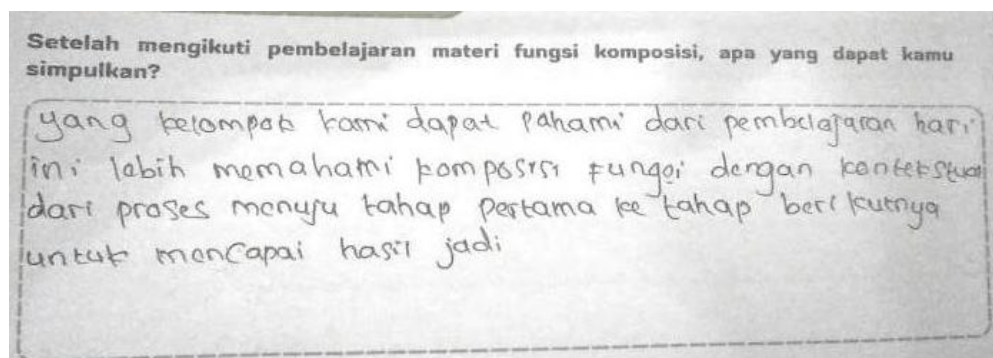 Setelah mengikuti pembelajaran materi fungsi komposisi, apa yang dapat kamu
simpulkan?
yang kelompok kami dapat pahami dari pembelajaran hari
ini lebih memahami komposisi fungsi dengan kontekstual
dari proses menuju tahap pertama ke tahap berikutnya
untuk mencapai hasil jadi